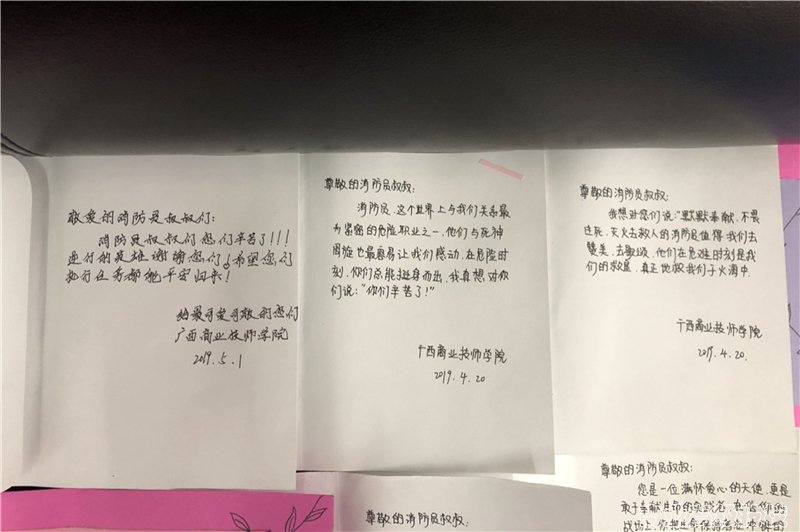 敬爱的消防员叔叔们:
消防员叔叔们您们辛苦了!!!
逆行的英雄谢谢您们!希望您们
执行任务都能平安归来!
给最可爱可敬的您们
广西商业技师学院
2019.5.1
尊敬的消防员叔叔:
消防员,这个世界上与我们关系最
为紧密的危险职业之一,他们与死神
周旋也最容易让我们感动,在危险时
刻,你们总能挺身而出,我真想对你
们说:“你们辛苦了!”
广西商业技师学院
2019.4.20
尊敬的消防员叔叔:
我想对您们说:“默默奉献,不畏
生死,灭火去救人的消防员值得我们去
赞美,去歌颂,他们在危难时刻是我
们的救星,真正地救我们于火海中.
广西商业技师学院
2019.4.20.
尊敬的消防员叔叔:
尊敬的消防员叔叔:
您是一位满怀爱心的天使,更是
敢于奉献生命的实践者,